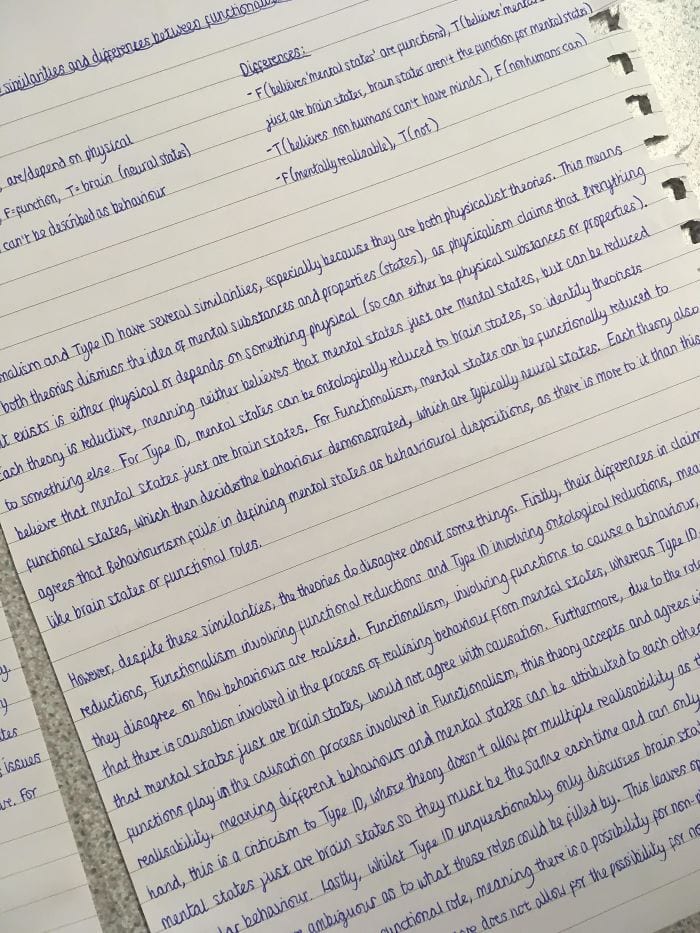 similarities and differences between functionali
Differences:
- F(believes 'mental states' are functions), T(believes 'mental
just are brain states, brain states aren't the function for mental states)
- T(believes nonhumans can't have minds), F(nonhumans can)
- F(mentally realisable), T(not)
are/depend on physical
F=function, T= brain (neural states)
can't be described as behaviour
nalism and Type ID have several similarities, especially because they are both physicalist theories. This means
both theories dismiss the idea of mental substances and properties (states), as physicalism claims that everything
t exists is either physical or depends on something physical (so can either be physical substances or properties).
Each theory is reductive, meaning neither believes that mental states just are mental states, but can be reduced
to something else. For Type ID, mental states can be ontologically reduced to brain states, so identity theorists
believe that mental states just are brain states. For Functionalism, mental states can be functionally reduced to
functional states, which then decides the behaviour demonstrated, which are typically neural states. Each theory also
agrees that Behaviourism fails in defining mental states as behavioural dispositions, as there is more to it than this
like brain states or functional roles.
However, despite these similarities, the theories do disagree about some things. Firstly, their differences in claim
reductions, Functionalism involving functional reductions and Type ID involving ontological reductions, mea
they disagree on how behaviours are realised. Functionalism, involving functions to cause a behaviour,
that there is causation involved in the process of realising behaviour from mental states, whereas Type ID
that mental states just are brain states, would not agree with causation. Furthermore, due to the role
functions play in the causation process involved in Functionalism, this theory accepts and agrees wi
realisability, meaning different behaviours and mental states can be attributed to each other
hand, this is a criticism to Type ID, whose theory doesn't allow for multiple realisability as th
mental states just are brain states so they must be the same each time and can only
lar behaviour. Lastly, whilst Type ID unquestionably only discusses brain stat
ambiguous as to what these roles could be filled by. This leaves op
unctional role, meaning there is a possibility for non-
does not allow for the possibility for no
y
y
tes
issues
ve. For